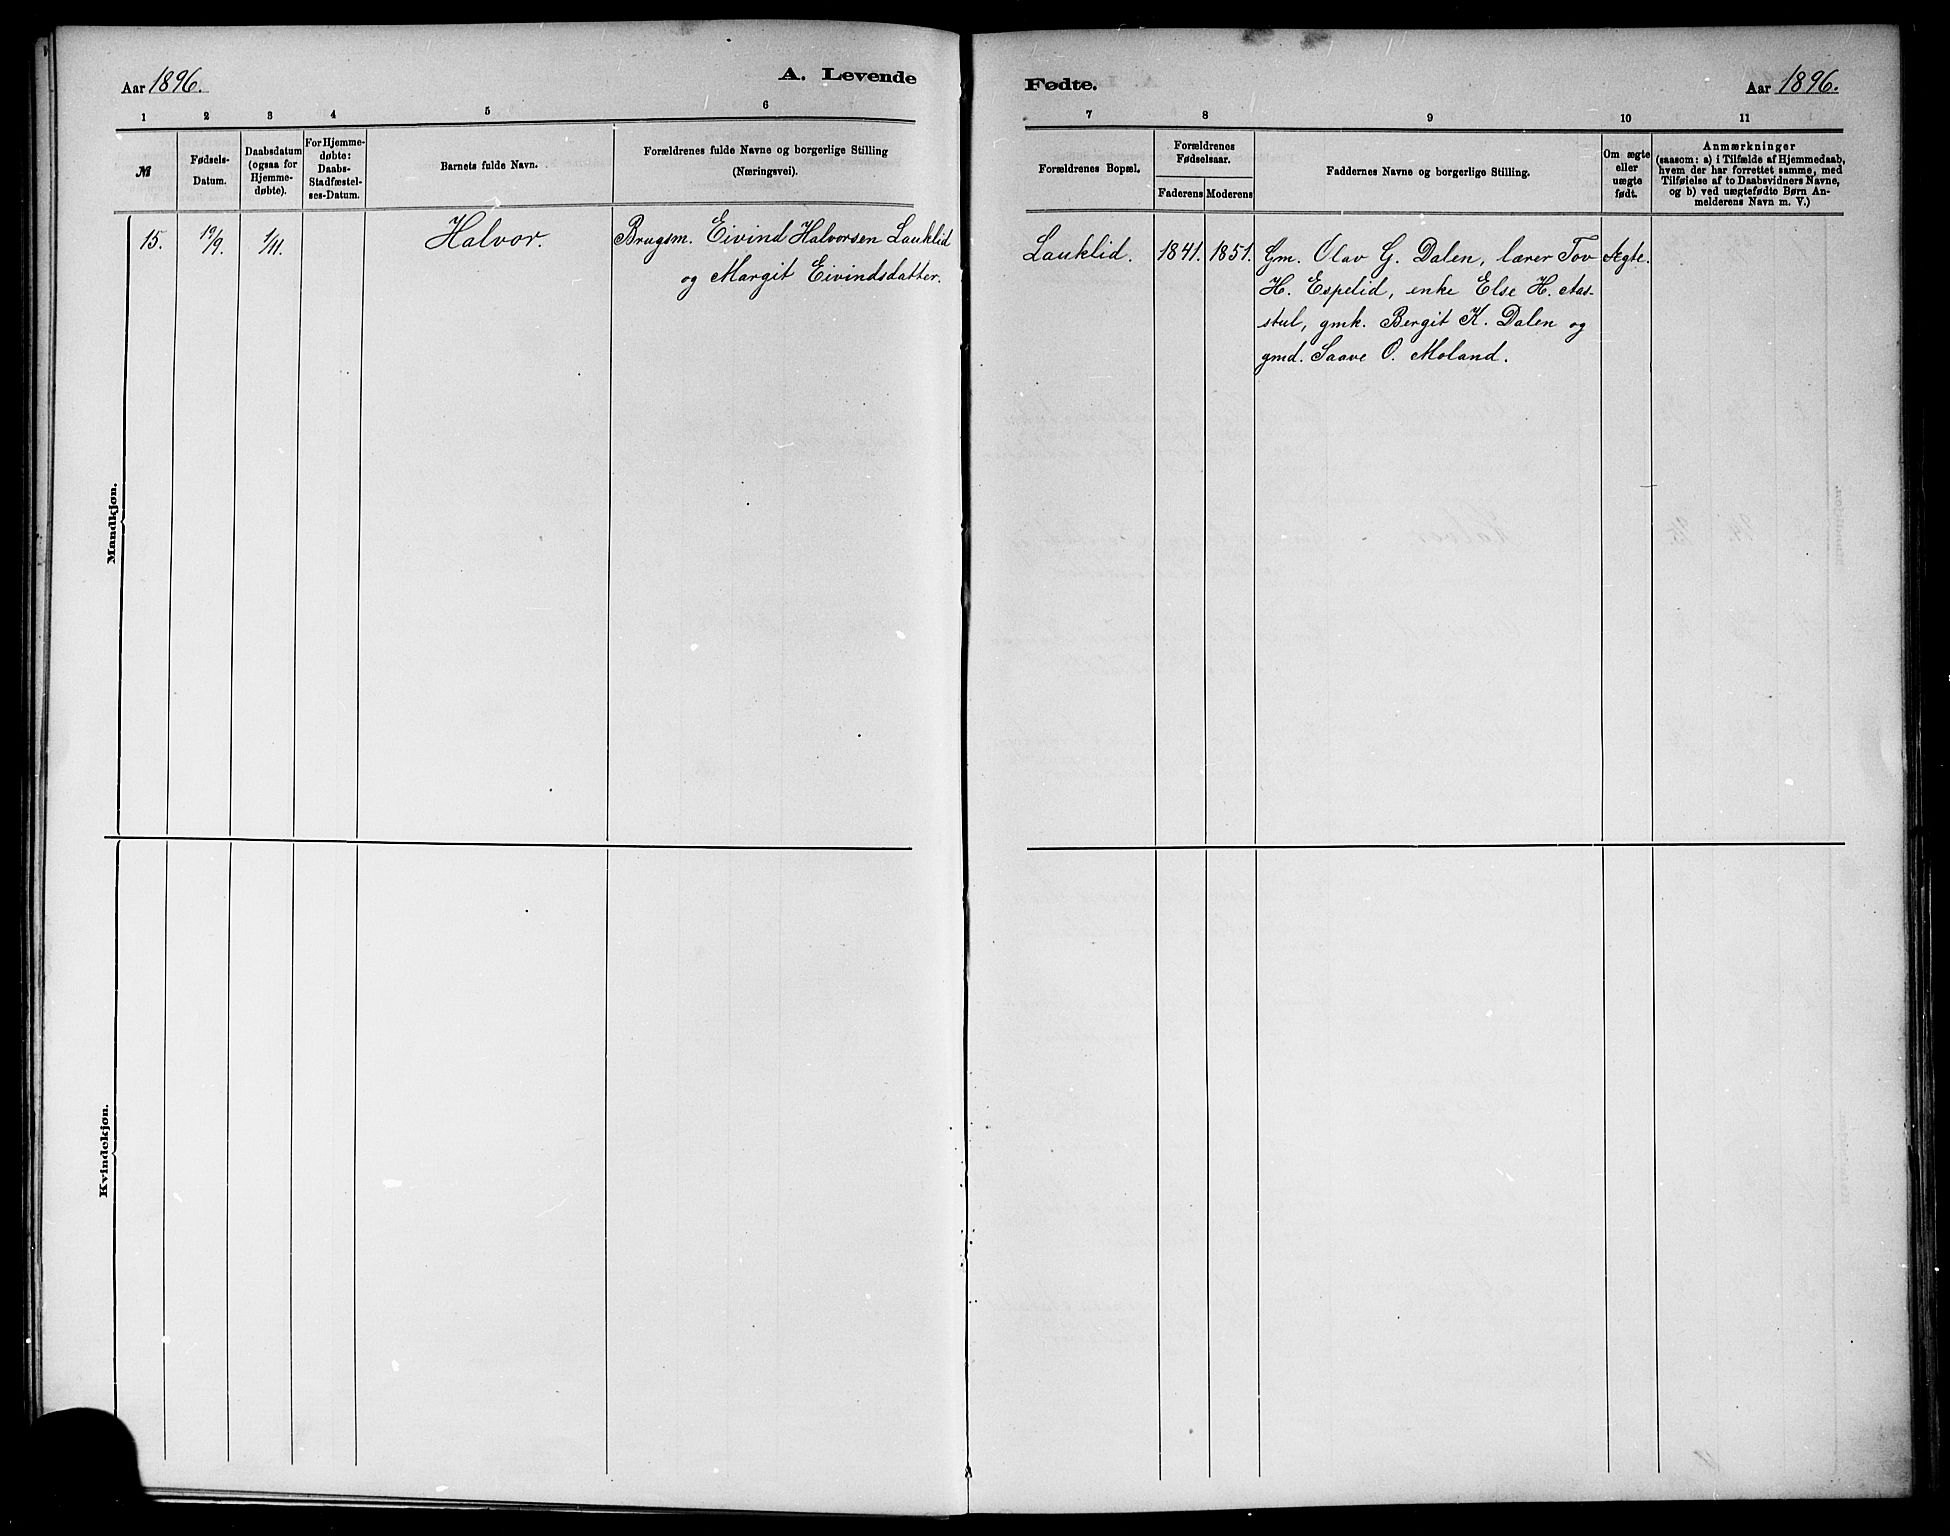 Aar 1896.
A. Levende
1 2 3 4 5 6
№
Fødsels-
Datum.
Daabsdatum
(ogsaa for
Hjemme-
døbte).
For Hjemme-
døbte:
Daabs-
Stadfæstel-
ses-Datum.
Barnets fulde Navn.
Forældrenes fulde Navne og borgerlige Stilling
(Næringsvei).
Mandkjøn.
15. 19/9. 1/11. Halvor. Brugsm. Eivind Halvorsen Lauklid
og Margit Eivindsdatter.
Kvindekjøn.
Fødte.
Aar 1896.
7 8 9 10 11
Forældrenes Bopæl.
Forældrenes
Fødselsaar.
Faderens Moderens
Faddernes Navne og borgerlige Stilling.
Om ægte
eller
uægte
født.
Anmærkninger
(saasom: a) i Tilfælde af Hjemmedaab,
hvem der har forrettet samme, med
Tilføielse af to Daabsvidners Navne,
og b) ved uægtefødte Børn An-
melderens Navn m. V.)
Lauklid. 1841. 1851. Gm. Olav G. Dalen, lærer Tov Ægte.
H. Espelid, enke Else H. Aas-
stul, gmk. Bergit K. Dalen og
gmd. Saave O. Moland.